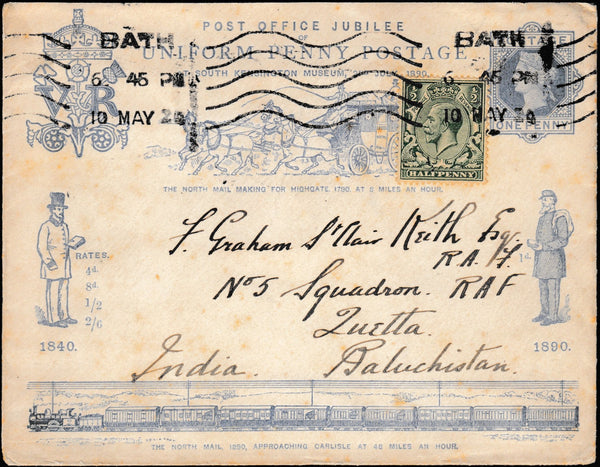 POST OFFICE JUBILEE
OF
UNIFORM PENNY POSTAGE
SOUTH KENSINGTON MUSEUM, 2ND JULY 1890.
BATH
6 45 PM
10 MAY
BATH
6 45 PM
10 MAY
VR
POSTAGE
ONE PENNY
½ ½
HALFPENNY
THE NORTH MAIL MAKING FOR HIGHGATE 1790. AT 8 MILES AN HOUR.
RATES.
4d.
8d.
1/2
2/6
1d.
F. Graham St Clair Keith Esq
R.A.F.
No 5 Squadron. RAF
Quetta.
India. Baluchistan.
1840.
1890.
THE NORTH MAIL, 1890, APPROACHING CARLISLE AT 48 MILES AN HOUR.